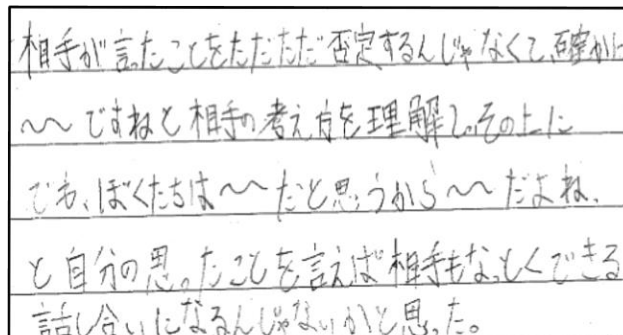 相手が言ったことをただただ否定するんじゃなくて、確かに
〜〜ですねと相手の考え方を理解し、その上に
でも、ぼくたちは〜〜だと思うから〜〜だよね、
と自分の思ったことを言えば相手もなっとくできる
話し合いになるんじゃないかと思った。